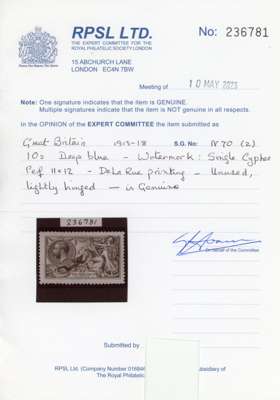 RPSL LTD.
THE EXPERT COMMITTEE FOR THE
ROYAL PHILATELIC SOCIETY LONDON
No: 236781
15 ABCHURCH LANE
LONDON EC4N 7BW
Meeting of 10 MAY 2023
Note: One signature indicates that the item is GENUINE.
Multiple signatures indicate that the item is NOT genuine in all respects.
In the OPINION of the EXPERT COMMITTEE the item submitted as
Great Britain 1913-18 S.G. No: N70 (2)
10s Deep blue - Watermark: Single Cypher
Perf 11x12 - De La Rue printing - Unused,
lightly hinged - is Genuine
236781
On behalf of the Committee
Submitted by
RPSL Ltd. (Company Number 01694 sidiary of
The Royal Philatelic